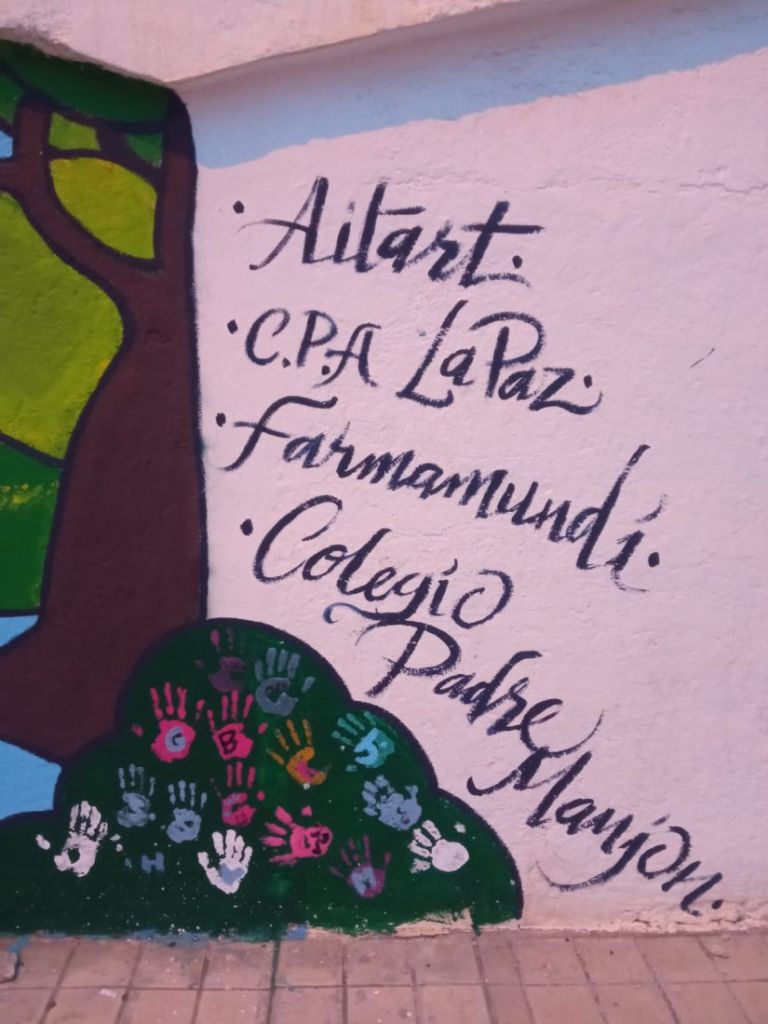 · Aitart.
· C.P.A La Paz.
· Farmamundi.
· Colegio
Padre
Manjón.
G
B
H